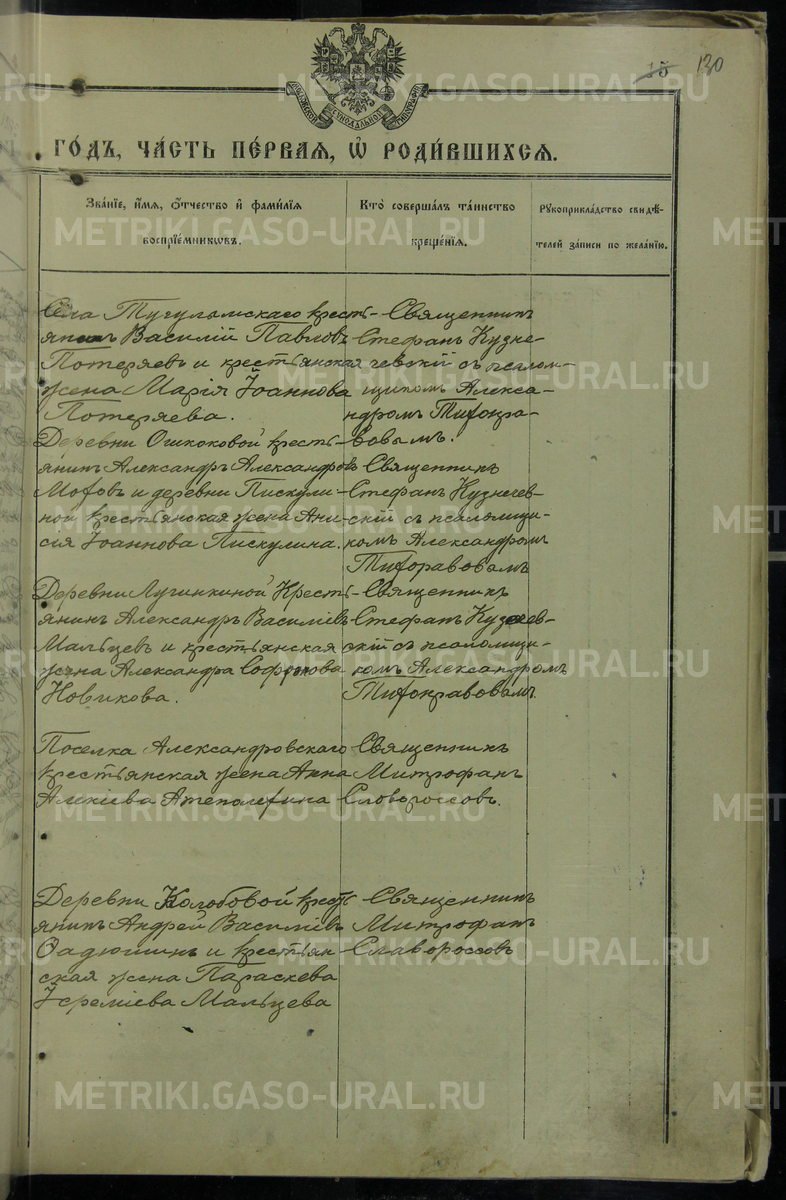 15 130
ГОДЪ, ЧАСТЬ ПЕРВАЯ, Ѡ РОДИВШИХСЯ.
Званіе, имя, отчество и фамилія
воспріемниковъ.
Кто совершалъ таинство
крещенія.
Рукоприкладство свидѣ-
телей записи по желанію.
Села Тугулымскаго кресть-
янинъ Василій Павловъ
Потеряевъ и крестьянская
жена Марія Іоаннова
Потеряева.
Священникъ
Стефанъ Кузне-
чевскій съ псалом-
щикомъ Алекса-
ндромъ
Деревни Ошкоковой кресть-
янинъ Александръ Александровъ
Мотовъ и деревни Пискули-
ной крестьянская жена Ани-
сія Іоаннова Пискулина.
Священникъ
Стефанъ Кузнечев-
скій съ псаломщи-
комъ Александромъ
Деревни Лучинкиной Кресть-
янинъ Александръ Василіевъ
Мальцевъ и крестьянская
жена Александра Софронова
Новикова.
Священникъ
Стефанъ Кузнечев-
скій съ псаломщи-
комъ Александромъ
Поселка Александровскаго
крестьянская жена Анна
Алексіева
Священникъ
Митрофанъ
Словороссовъ.
Деревни Колобовой кресть-
янинъ Андрей Василіевъ
и крестьян
ская жена Параскева
Іереміева Мальцева
Священникъ
Митрофанъ
Славороссовъ
METRIKI.GASO-URAL.RU